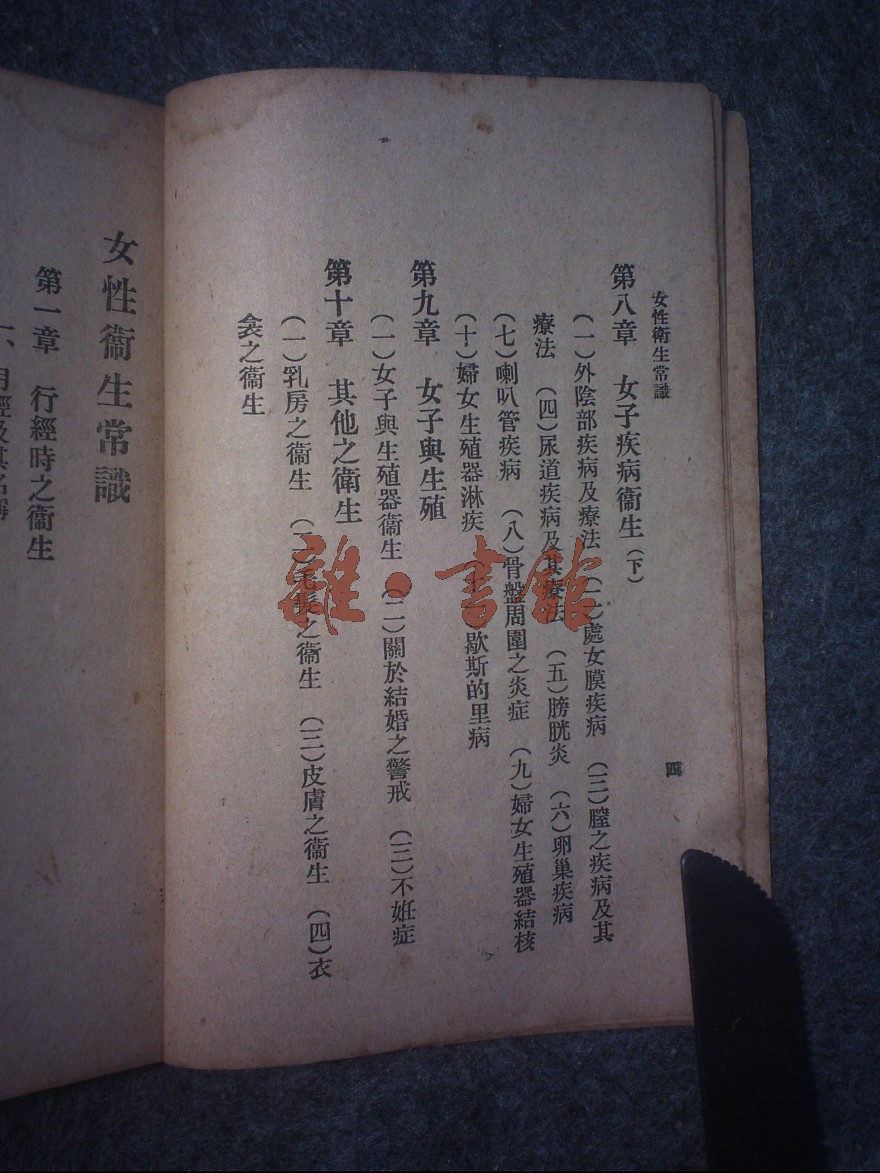 女性衛生常識
四
第八章　女子疾病衞生（下）
（一）外陰部疾病及療法　（二）處女膜疾病　（三）膣之疾病及其
療法　（四）尿道疾病及其療法　（五）膀胱炎　（六）卵巢疾病
（七）喇叭管疾病　（八）骨盤周圍之炎症　（九）婦女生殖器結核
（十）婦女生殖器淋疾　歇斯的里病
第九章　女子與生殖
（一）女子與生殖器衞生　（二）關於結婚之警戒　（三）不姙症
第十章　其他之衛生
（一）乳房之衞生　（二）毛髮之衞生　（三）皮膚之衞生　（四）衣
衾之衞生
女性衞生常識
第一章　行經時之衞生
一、月經及其名稱
雜·書館